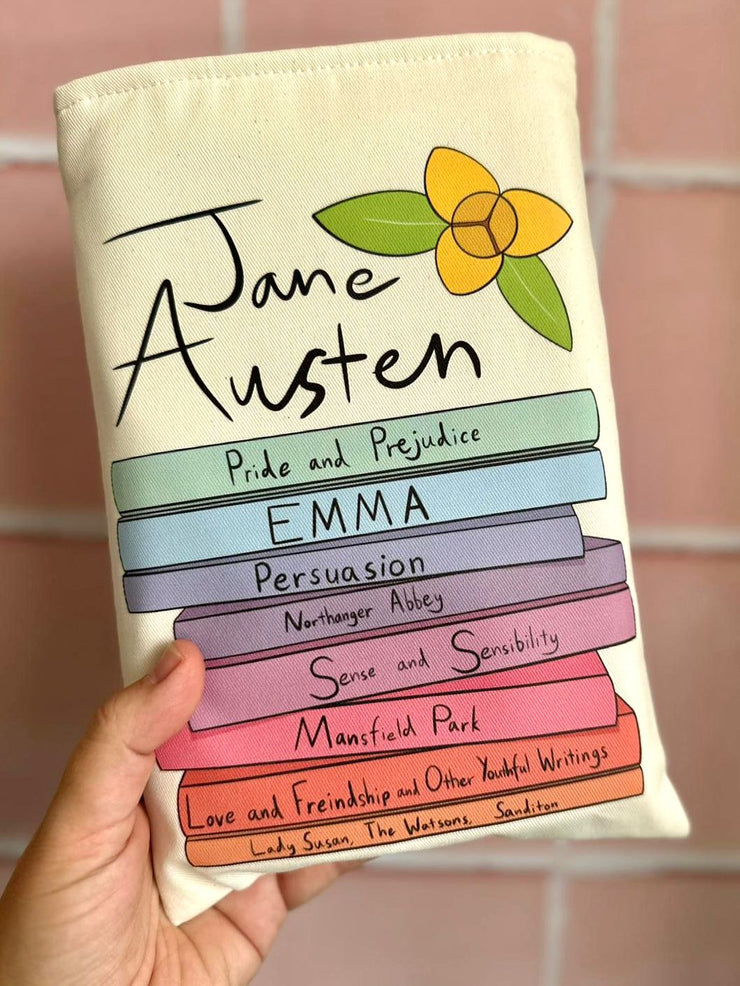 Jane
Austen
Pride and Prejudice
EMMA
Persuasion
Northanger Abbey
Sense and Sensibility
Mansfield Park
Love and Freindship and Other Youthful Writings
Lady Susan, The Watsons, Sanditon